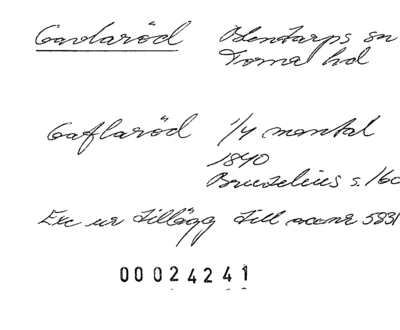 Gavlaröd Everlöv sn
Torna hd
Gaflaröd 1/4 mantal
1840
Bruzelius s. 160
Exc ur tillägg till accnr 5831
00024241